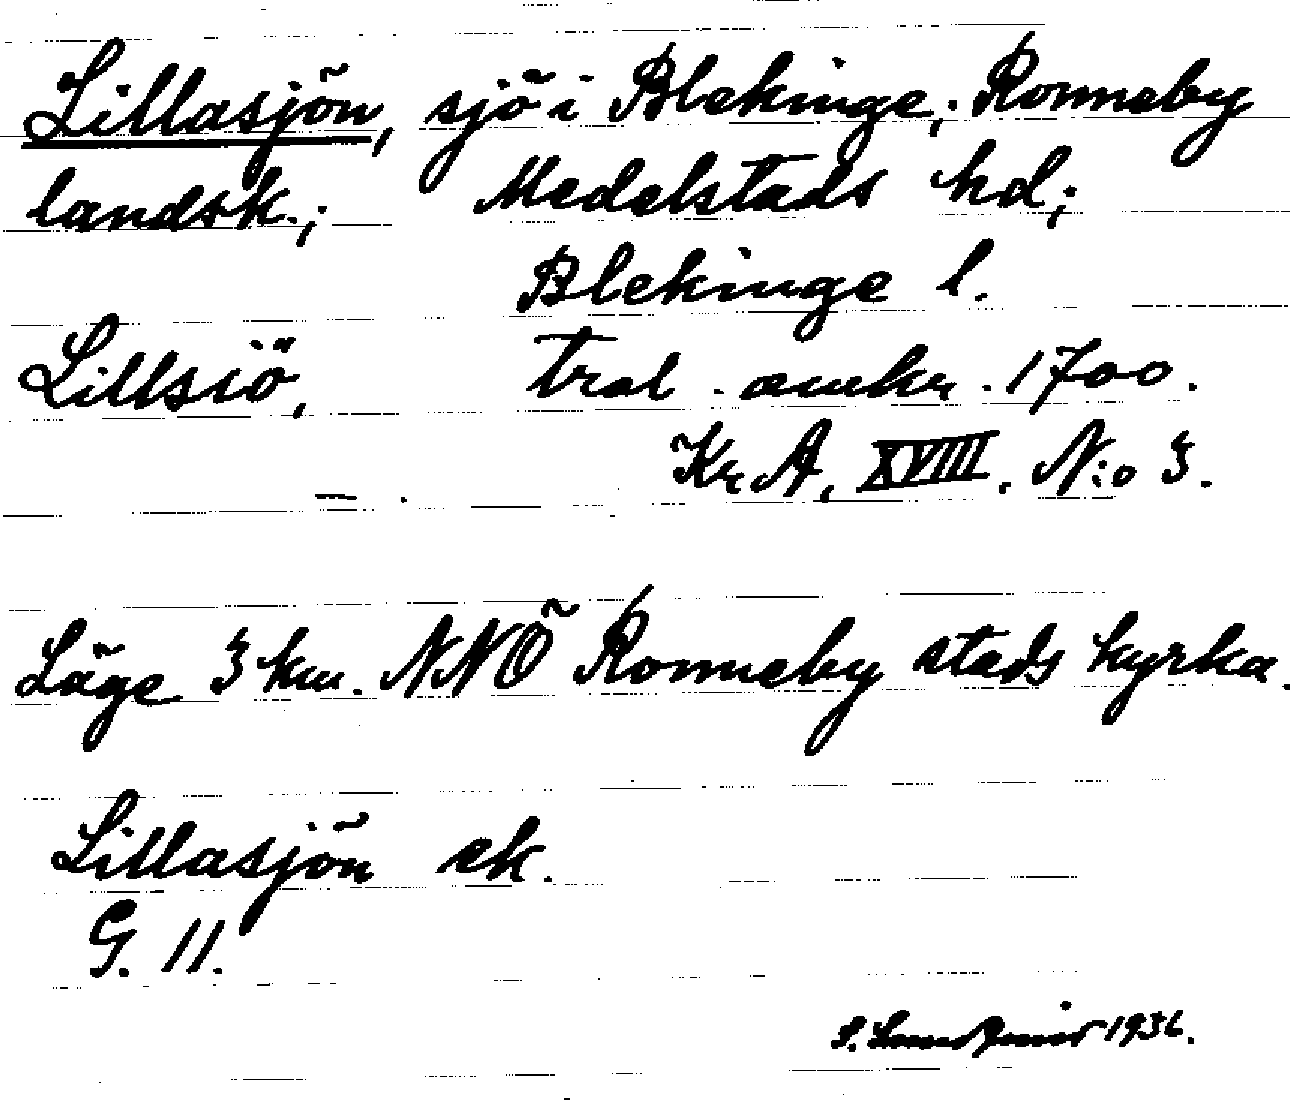 Lillasjön, sjö i Blekinge; Ronneby
landsk.; Medelstads hd;
Blekinge l.
Lillsiö, tral. omkr. 1700.
Kr.A, XVIII. N:o 3.
— .
Läge 3 km. NNÖ Ronneby stads kyrka.
Lillasjön ek.
G. 11.
S. 1936.